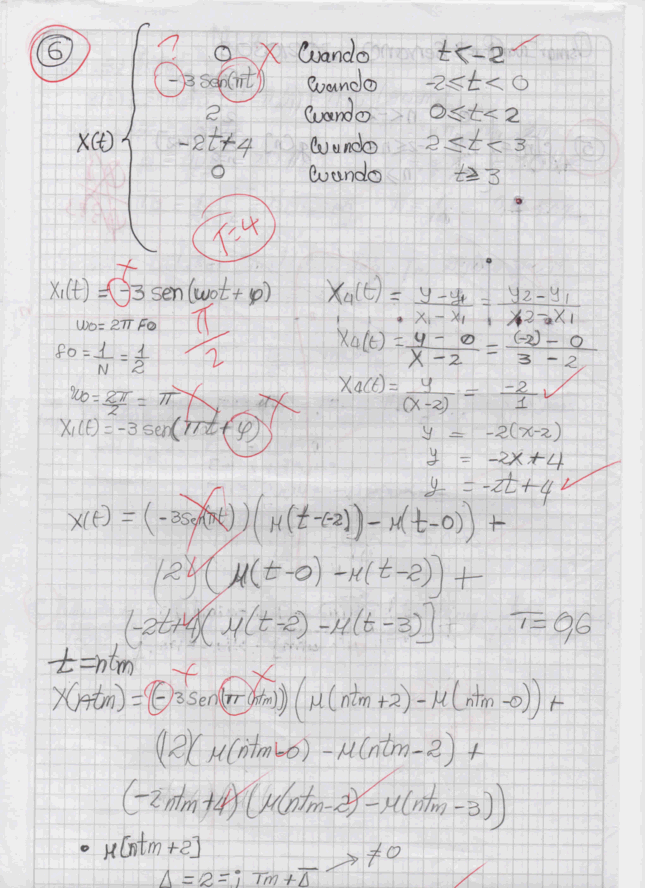 6
? 0 X Cuando t < -2
-3 sen(πt) Cuando -2 ≤ t < 0
2 Cuando 0 ≤ t < 2
X(t) -2t+4 Cuando 2 ≤ t < 3
0 Cuando t ≥ 3
T=4
+
X1(t) = -3 sen(wot + φ)
wo = 2π Fo
π/2
fo = 1/N = 1/2
wo = 2π/2 = π
X1(t) = -3 sen(πt + φ)
X4(t) = y - y1 / x1 - x1 = y2 - y1 / x2 - x1
X4(t) = y - 0 / x - 2 = (-2) - 0 / 3 - 2
X4(t) = y / (x-2) = -2 / 1
y = -2(x-2)
y = -2x+4
y = -2t+4
X(t) = (-3sen(πt))(μ(t-(-2)) - μ(t-0)) +
(2)(μ(t-0) - μ(t-2)) +
(-2t+4)(μ(t-2) - μ(t-3)]
T = 0,6
t = ntm
+ X
X(ntm) = (-3sen(π(ntm)))(μ(ntm+2) - μ(ntm-0)) +
(2)(μ(ntm-0) - μ(ntm-2) +
(-2ntm+4)(μ(ntm-2) - μ(ntm-3))
• μ[ntm+2]
≠0
Δ = 2 = j Tm + Δ